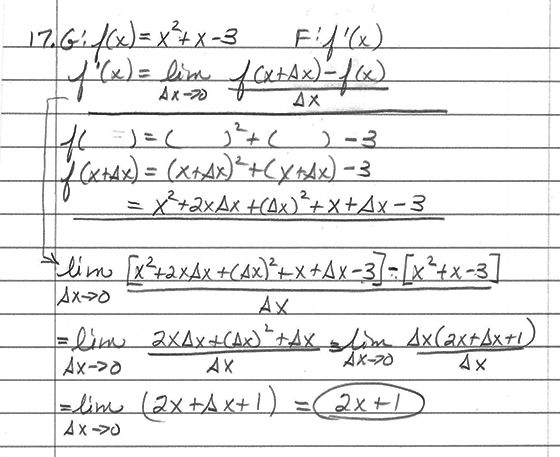 17. G: f(x) = x² + x - 3 F: f'(x)
f'(x) = lim Δx→0 (f(x+Δx) - f(x)) / Δx
f( = ) = ( )² + ( ) - 3
f(x+Δx) = (x+Δx)² + (x+Δx) - 3
= x² + 2xΔx + (Δx)² + x + Δx - 3
lim Δx→0 ([x² + 2xΔx + (Δx)² + x + Δx - 3] - [x² + x - 3]) / Δx
= lim Δx→0 (2xΔx + (Δx)² + Δx) / Δx = lim Δx→0 (Δx(2x + Δx + 1)) / Δx
= lim Δx→0 (2x + Δx + 1) = 2x + 1